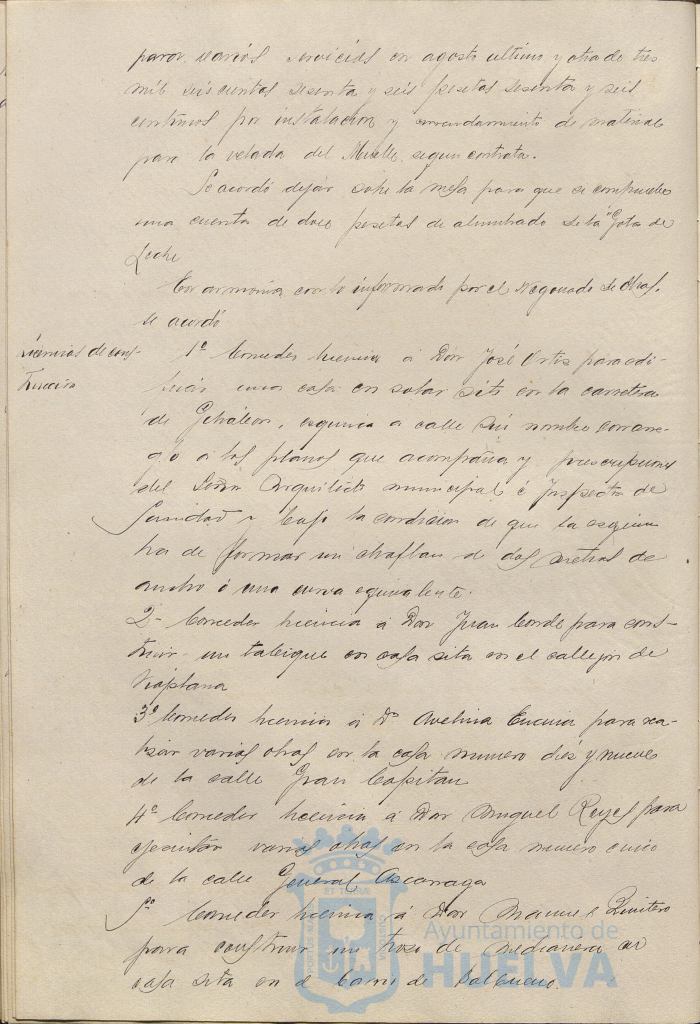 para varios servicios en agosto ultimo y otra de tres
mil seiscientas sesenta y seis pesetas sesenta y seis
centimos por instalacion y arrendamiento de material
para la velada del Muelle, segun contrata.
Se acordó dejar sobre la mesa para que se compruebe
una cuenta de doce pesetas de alumbrado de la "Gota de
Leche
En armonia con lo informado por el Negociado de Obras,
se acordó
Licencias de cons-
trucción
1º Conceder licencia á Don José Ortiz para edi-
ficar una casa en solar sito en la carretera
de Gibraleon, esquina a calle sin nombre con arre-
glo á los planos que acompaña y prescripciones
del Señor Arquitecto municipal é Inspector de
Sanidad y bajo la condicion de que la esquina
ha de formar un chaflan de dos metros de
ancho ó una curva equivalente.
2- Conceder licencia á Don Juan Conde para cons-
truir un tabique en casa sita en el callejon de
3º Conceder licencia á Dª Avelina para rea-
lizar varias obras en la casa numero diez y nueve
de la calle Gran Capitan
4º Conceder licencia á Don Miguel Reyes para
ejecutar varias obras en la casa numero cinco
de la calle General Azcarraga
5º Conceder licencia á Don Manuel Quintero
para construir un trozo de medianera en
casa sita en el Barrio de Balbueno.
Ayuntamiento de
HUELVA